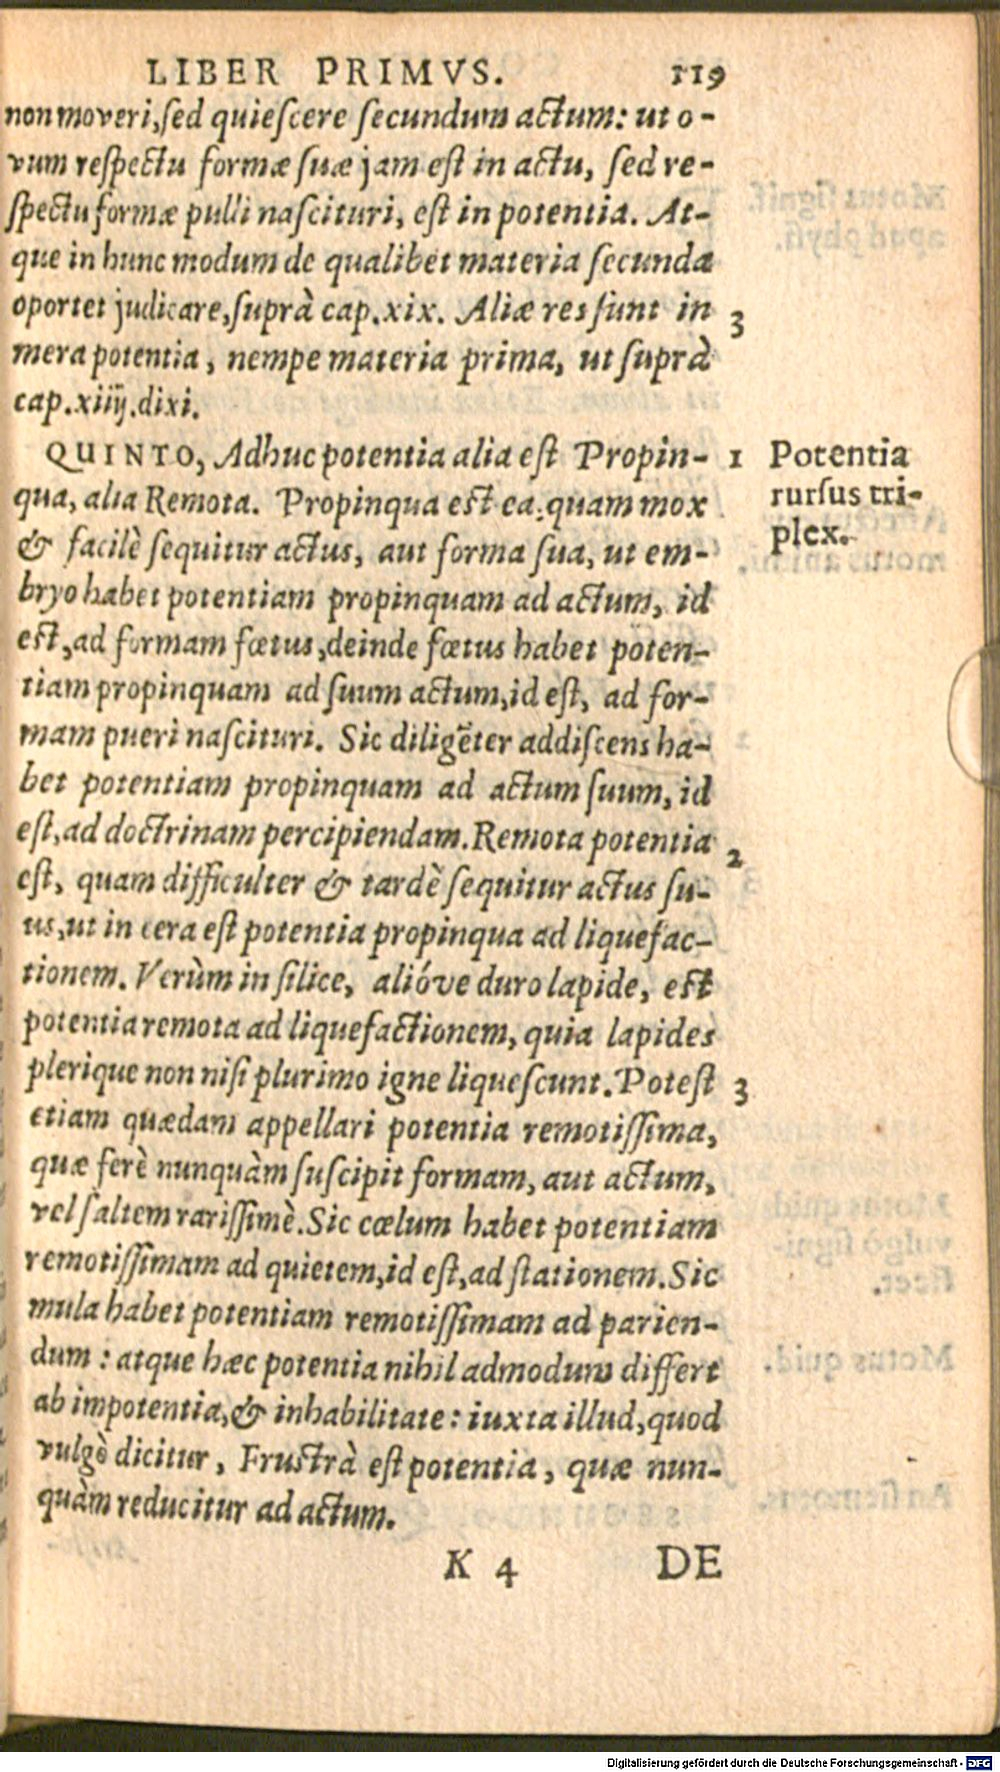 LIBER PRIMVS. 119
non moveri, sed quiescere secundum actum: ut o-
vum respectu formæ suæ jam est in actu, sed re-
spectu formæ pulli nascituri, est in potentia. At-
que in hunc modum de qualibet materia secunda
oportet judicare, suprà cap.xix. Aliæ res sunt in 3
mera potentia, nempe materia prima, ut suprà
cap.xiiij.dixi.
QUINTO, Adhuc potentia alia est Propin- 1 Potentia
qua, alia Remota. Propinqua est ea, quam mox rursus tri-
& facilè sequitur actus, aut forma sua, ut em- plex.
bryo habet potentiam propinquam ad actum, id
est, ad formam fœtus, deinde fœtus habet poten-
tiam propinquam ad suum actum, id est, ad for-
mam pueri nascituri. Sic diligẽter addiscens ha-
bet potentiam propinquam ad actum suum, id
est, ad doctrinam percipiendam. Remota potentia 2
est, quam difficulter & tardè sequitur actus su-
us, ut in cera est potentia propinqua ad liquefac-
tionem. Verùm in silice, alióve duro lapide, est
potentia remota ad liquefactionem, quia lapides
plerique non nisi plurimo igne liquescunt. Potest 3
etiam quædam appellari potentia remotissima,
quæ ferè nunquàm suscipit formam, aut actum,
vel saltem rarissimè. Sic cœlum habet potentiam
remotissimam ad quietem, id est, ad stationem. Sic
mula habet potentiam remotissimam ad parien-
dum: atque hæc potentia nihil admodum differt
ab impotentia, & inhabilitate: iuxta illud, quod
vulgè dicitur, Frustrà est potentia, quæ nun-
quàm reducitur ad actum.
K 4 DE
Digitalisierung gefördert durch die Deutsche Forschungsgemeinschaft - DFG